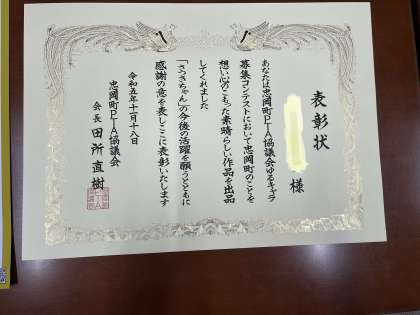 表彰状
様
あなたは忠岡町PTA協議会ゆるキャラ
募集コンテストにおいて忠岡町のことを
想い心のこもった素晴らしい作品を出品
してくれました
「さつきちゃん」の今後の活躍を願うとともに
感謝の意を表しここに表彰いたします
令和五年十一月十八日
忠岡町PTA協議会
会長 田所直樹